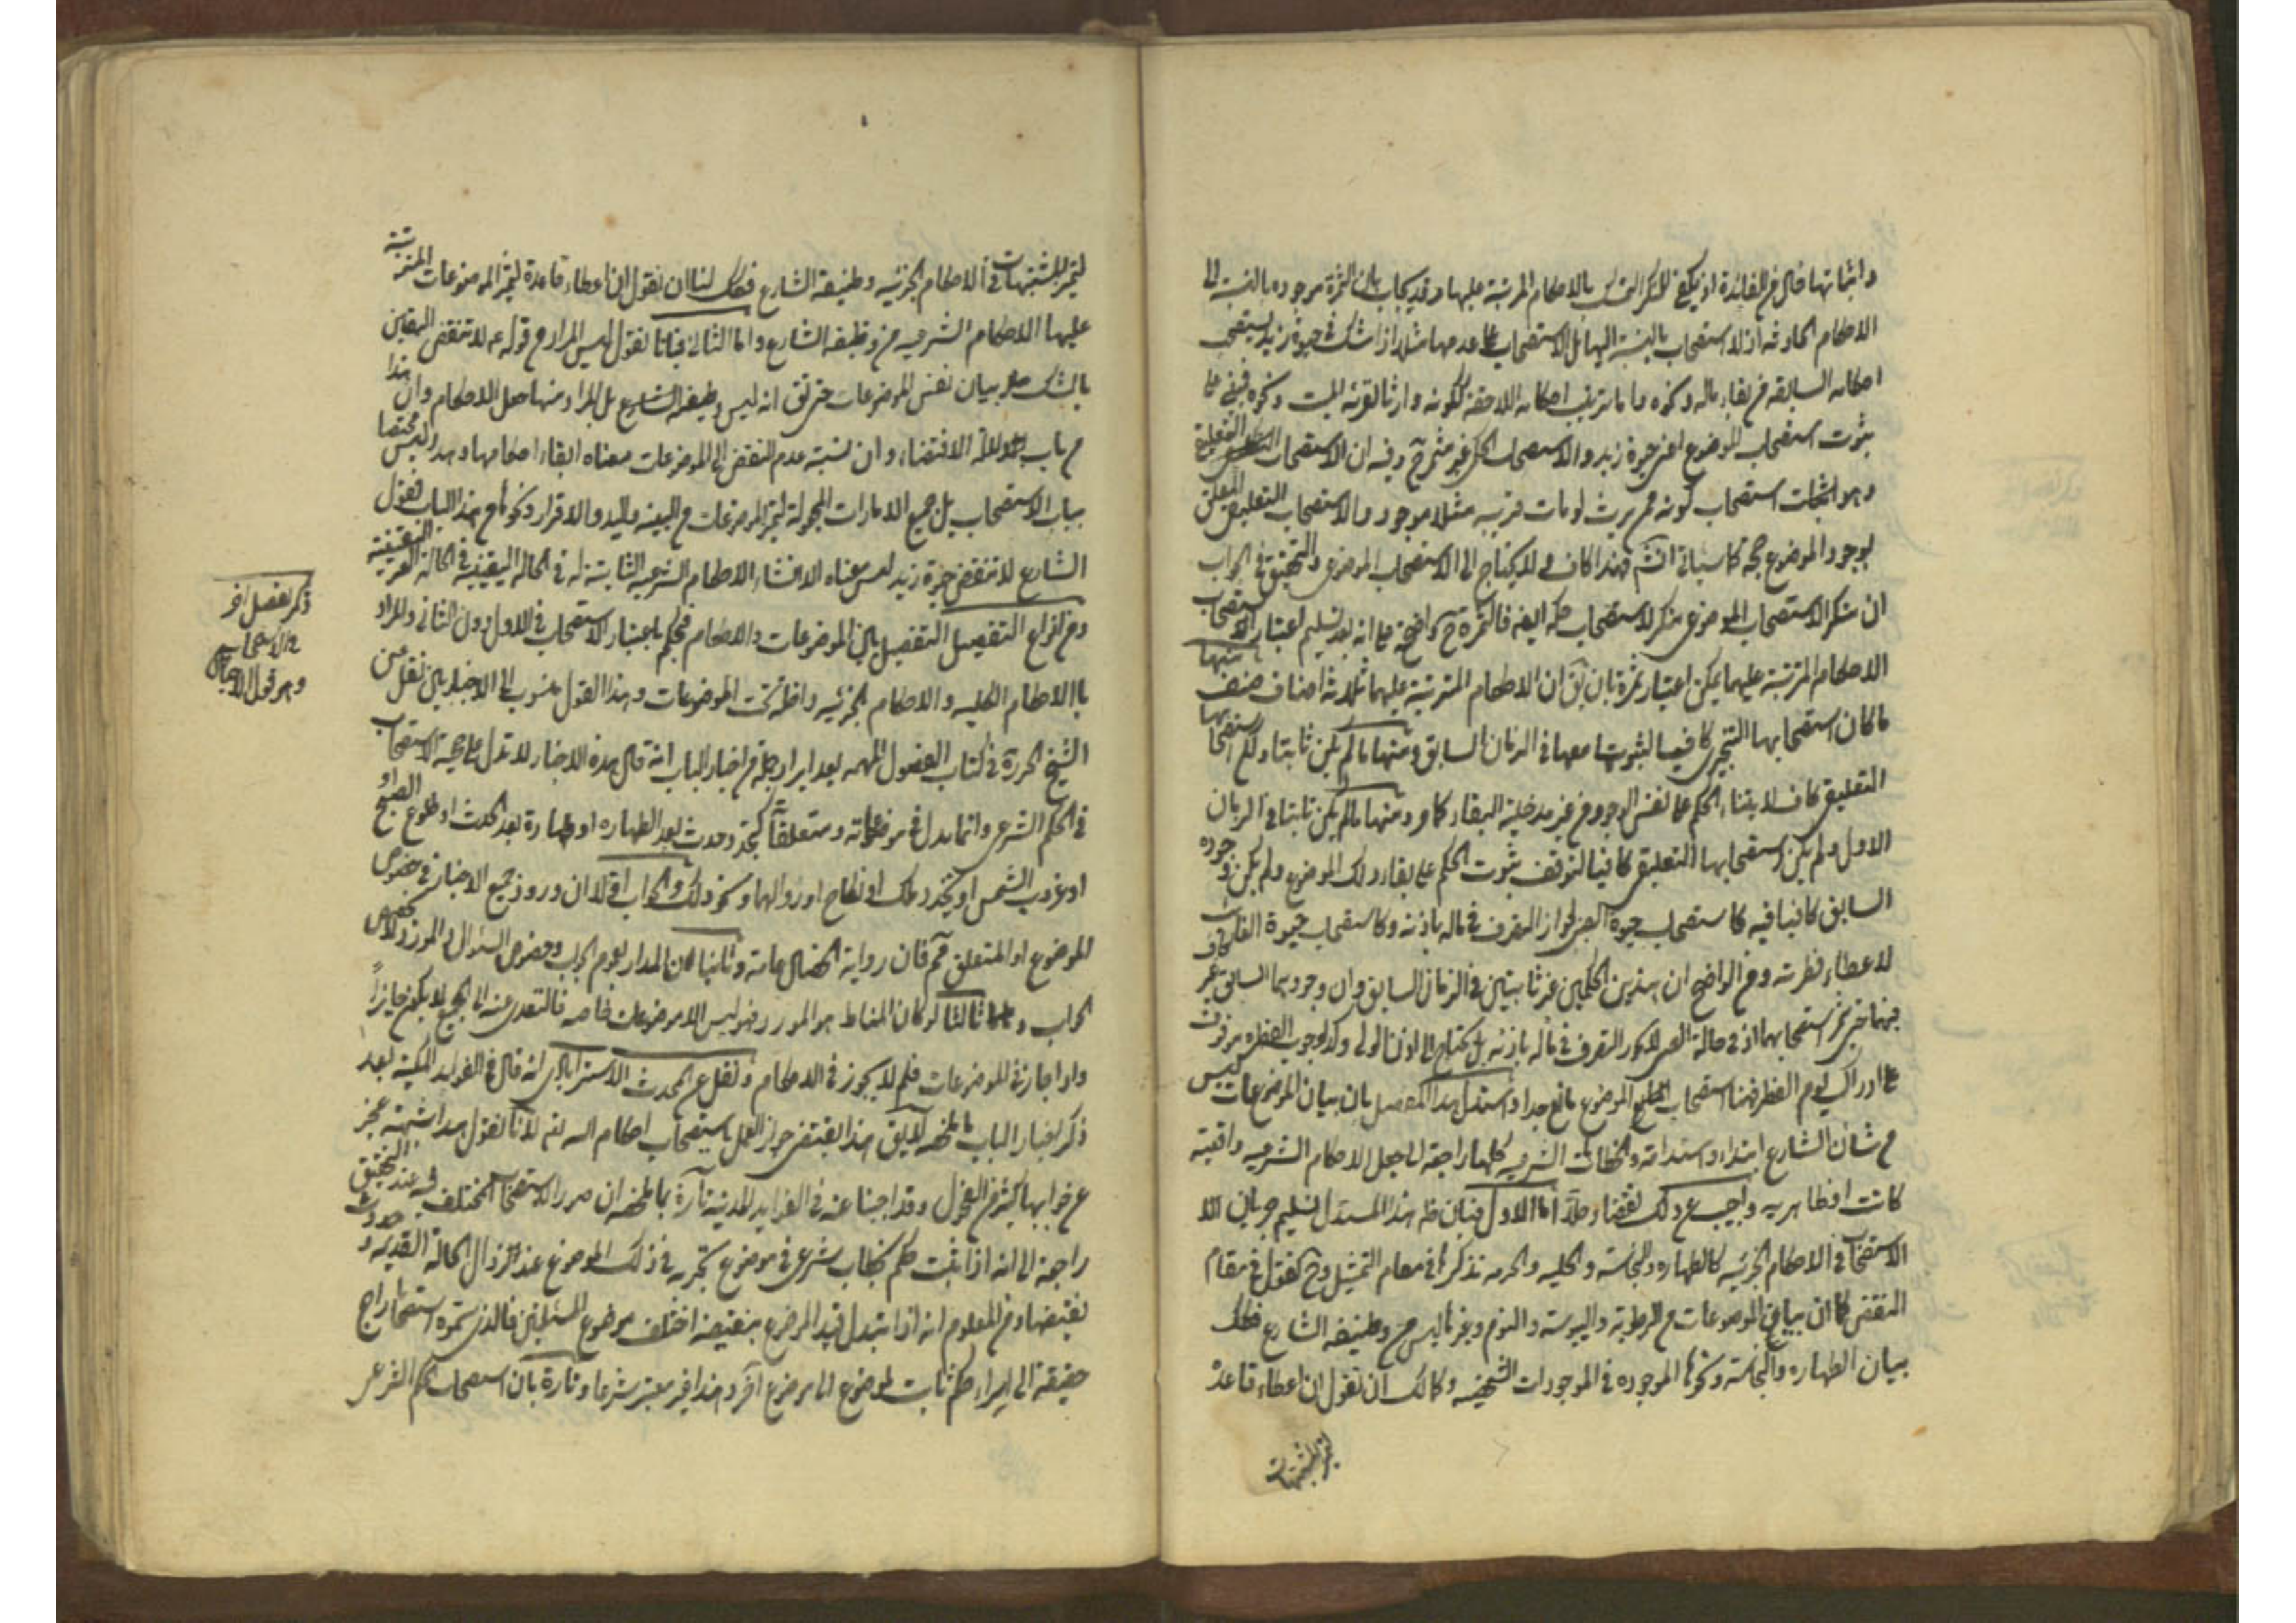 واثباتها خال عن الفائدة اذ يكفي للمنكر التمسك بالاحكام المرتبة عليها وقد يجاب بان الثمرة موجودة بالنسبة الى
الاحكام الحادثه اذ لا استصحاب بالنسبة اليها بل الاستصحاب على عدمها مثلا اذا شك في حيوة زيد يستصحب
احكامه السابقه من بقاء ماله ونحوه واما ترتيب احكامه اللاحقة ككونه وارثا لقريبه الميت ونحوه فيبنى على
ثبوت استصحاب الموضوع اعني حيوة زيد والاستصحاب الحكمي غير مثمر ح وفيه ان الاستصحاب التعليقي
وهو اثبات استصحاب كونه ممن يرث لو مات قريبه مثلا موجود والاستصحاب التعليقي المعلق
لوجود الموضوع حجة كما سياتي انش فهذا كاف ولا يحتاج الى الاستصحاب الموضوعي والتحقيق في الجواب
ان منكر الاستصحاب الموضوعي منكر لاستصحاب حكمه ايضا فالثمرة ح واضحة مع انه بعد تسليم اعتبار الاستصحاب
الاحكام المترتبة عليهما يمكن اعتبار ثمرة بان يق ان الاحكام المترتبة عليهما ثلاثة اصناف صنف منها
ما كان استصحابها التنجيزي كافيا لثبوتها معها في الزمان السابق ومنها ما لم يكن ثابتا ولكن استصحابها
التعليقي كاف لابتناء الحكم على نفس الوجود من غير مدخلية البقاء كما مر ومنها ما لم يكن ثابتا في الزمان
الاول ولم يكن استصحابها التعليقي كافيا لتوقف ثبوت الحكم على بقاء ذلك الموضوع ولم يكن وجوده
السابق كافيا فيه كاستصحاب حيوة الصبي لجواز التصرف في ماله باذنه وكاستصحاب حيوة الغائب
لاعطاء فطرته ومن الواضح ان هذين الحكمين غير ثابتين في الزمان السابق وان وجودهما السابق غير كاف
فيهما حتى يجري استصحابهما اذ في حالة الصغر لا يجوز التصرف في ماله باذنه بل يحتاج الى اذن الولي وكذا وجوب الفطره موقوف
على ادراك يوم الفطر فهنا استصحاب الموضوع نافع جدا واستدل هذا المفصل بان بيان الموضوعات ليس
من شان الشارع ابتداء واستدامة والخطابات الشرعيه كلها راجعة الى جعل الاحكام الشرعيه واقعية
كانت او ظاهريه واجيب عن ذلك نقضا وحلا اما الاول فبان ظ هذا المستدل تسليم جريان الا
الاستصحاب في الاحكام الجزئيه كالطهاره والنجاسة والحليه والحرمه بذكرها في مقام التمثيل وح نقول في مقام
النقض كما ان بيان الموضوعات من الرطوبة واليبوسة والنوم وغيرها ليس من وظيفه الشارع فكك
بيان الطهاره والنجاسة ونحوها الموجوده في الموجودات الشخصيه وكما لك ان تقول ان اعطاء قاعدة
لتميز المشتبهات
لتميز المشتبهات في الاحكام الجزئيه وظيفه الشارع فكك لنا ان نقول ان اعطاء قاعدة لتميز الموضوعات المترتبة
عليها الاحكام الشرعيه من وظيفه الشارع واما الثاني فبانا نقول ليس المراد من قوله ع لا تنقض اليقين
بالشك هو بيان نفس الموضوعات حتى يق انه ليس وظيفه الشارع بل المراد منها جعل الاحكام وان هذا
من باب دلالة الاقتضاء وان نسبة عدم النقض الى الموضوعات معناه ابقاء احكامها وهذا ليس مختصا
بباب الاستصحاب بل جميع الامارات المجعولة لتميز الموضوعات من البينه واليد والاقرار ونحوها من هذا الباب فقول
الشارع لا تنقض حيوة زيد ليس معناه الا انشاء الاحكام الشرعيه الثابتة له في الحالة اليقينيه في الحالة الغير اليقينية
ومن انواع التفصيل التفصيل بين الموضوعات والاحكام فيحكم باعتبار الاستصحاب في الاول دون الثاني والمراد
بالاحكام الكليه والاحكام الجزئيه داخلة تحت الموضوعات وهذا القول منسوب الى الاخباريين نقل عن
الشيخ الحر ره في كتاب الفصول المهمه بعد ايراد جملة من اخبار الباب انه قال هذه الاخبار لا تدل على حجية الاستصحاب
في الحكم الشرعي وانما تدل في موضوعاته ومتعلقاته كتجدد حدث بعد الطهاره او طهارة بعد الحدث او طلوع الصبح او
او غروب الشمس او تجدد ملك او نكاح او زوالهما ونحو ذلك والجواب اولا ان ورود جميع الاخبار في خصوص
الموضوع او المتعلق مم فان رواية الخصال عامة وثانيا ان المدار بعموم الجواب وخصوص السئوال والمورد لا يخصص
الجواب وثالثا لو كان المناط هو المورد فهو ليس الا موضوعات خاصه فالتعدى عنه الى الجميع لا يكون جايزاً
ولو جاز في الموضوعات فلم لا يجوز في الاحكام ونقل عن المحدث الاسترابادى انه قال في الفوايد المكية بعد
ذكر اخبار الباب ما لفظه لا يق هذا يقتضى جواز العمل باستصحاب احكام الله تع لانا نقول هذا شبهة عجز
عن جوابها كثير من الفحول وقد اجبنا عنه في الفوايد المدنيه تارة بما لفظه ان صور الاستصحاب المختلف فيه عند التحقيق
راجعة الى انه اذا ثبت حكم بخطاب شرعي في موضوع نجريه في ذلك الموضوع عند زوال الحالة القديمه وحدوث
نقيضها ومن المعلوم انه اذا تبدل قيد الموضوع بنقيضه اختلف موضوع المسئلتين فالذى سموه استصحابا راجع
حقيقة الى اسراء حكم ثابت لموضوع الى موضوع آخر وهذا غير معتبر شرعا وتارة بان استصحاب الحكم الشرعي
ذكر تفصيل اخر
في الاستصحاب
وهو قول الاخباريين